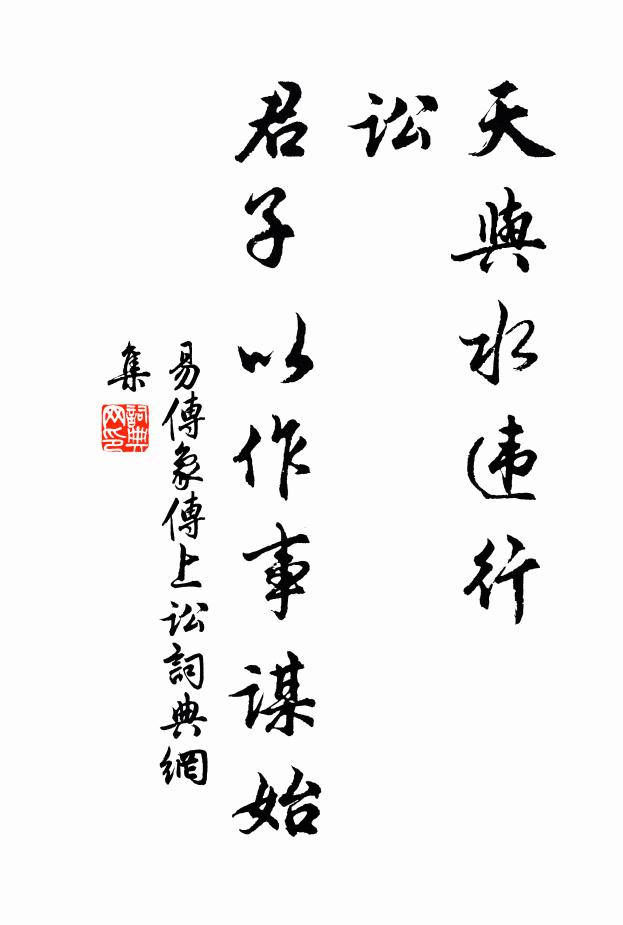 天與水违行
訟
君子以作事謀始
易傳象傳上訟詞典網
集
詞典网印